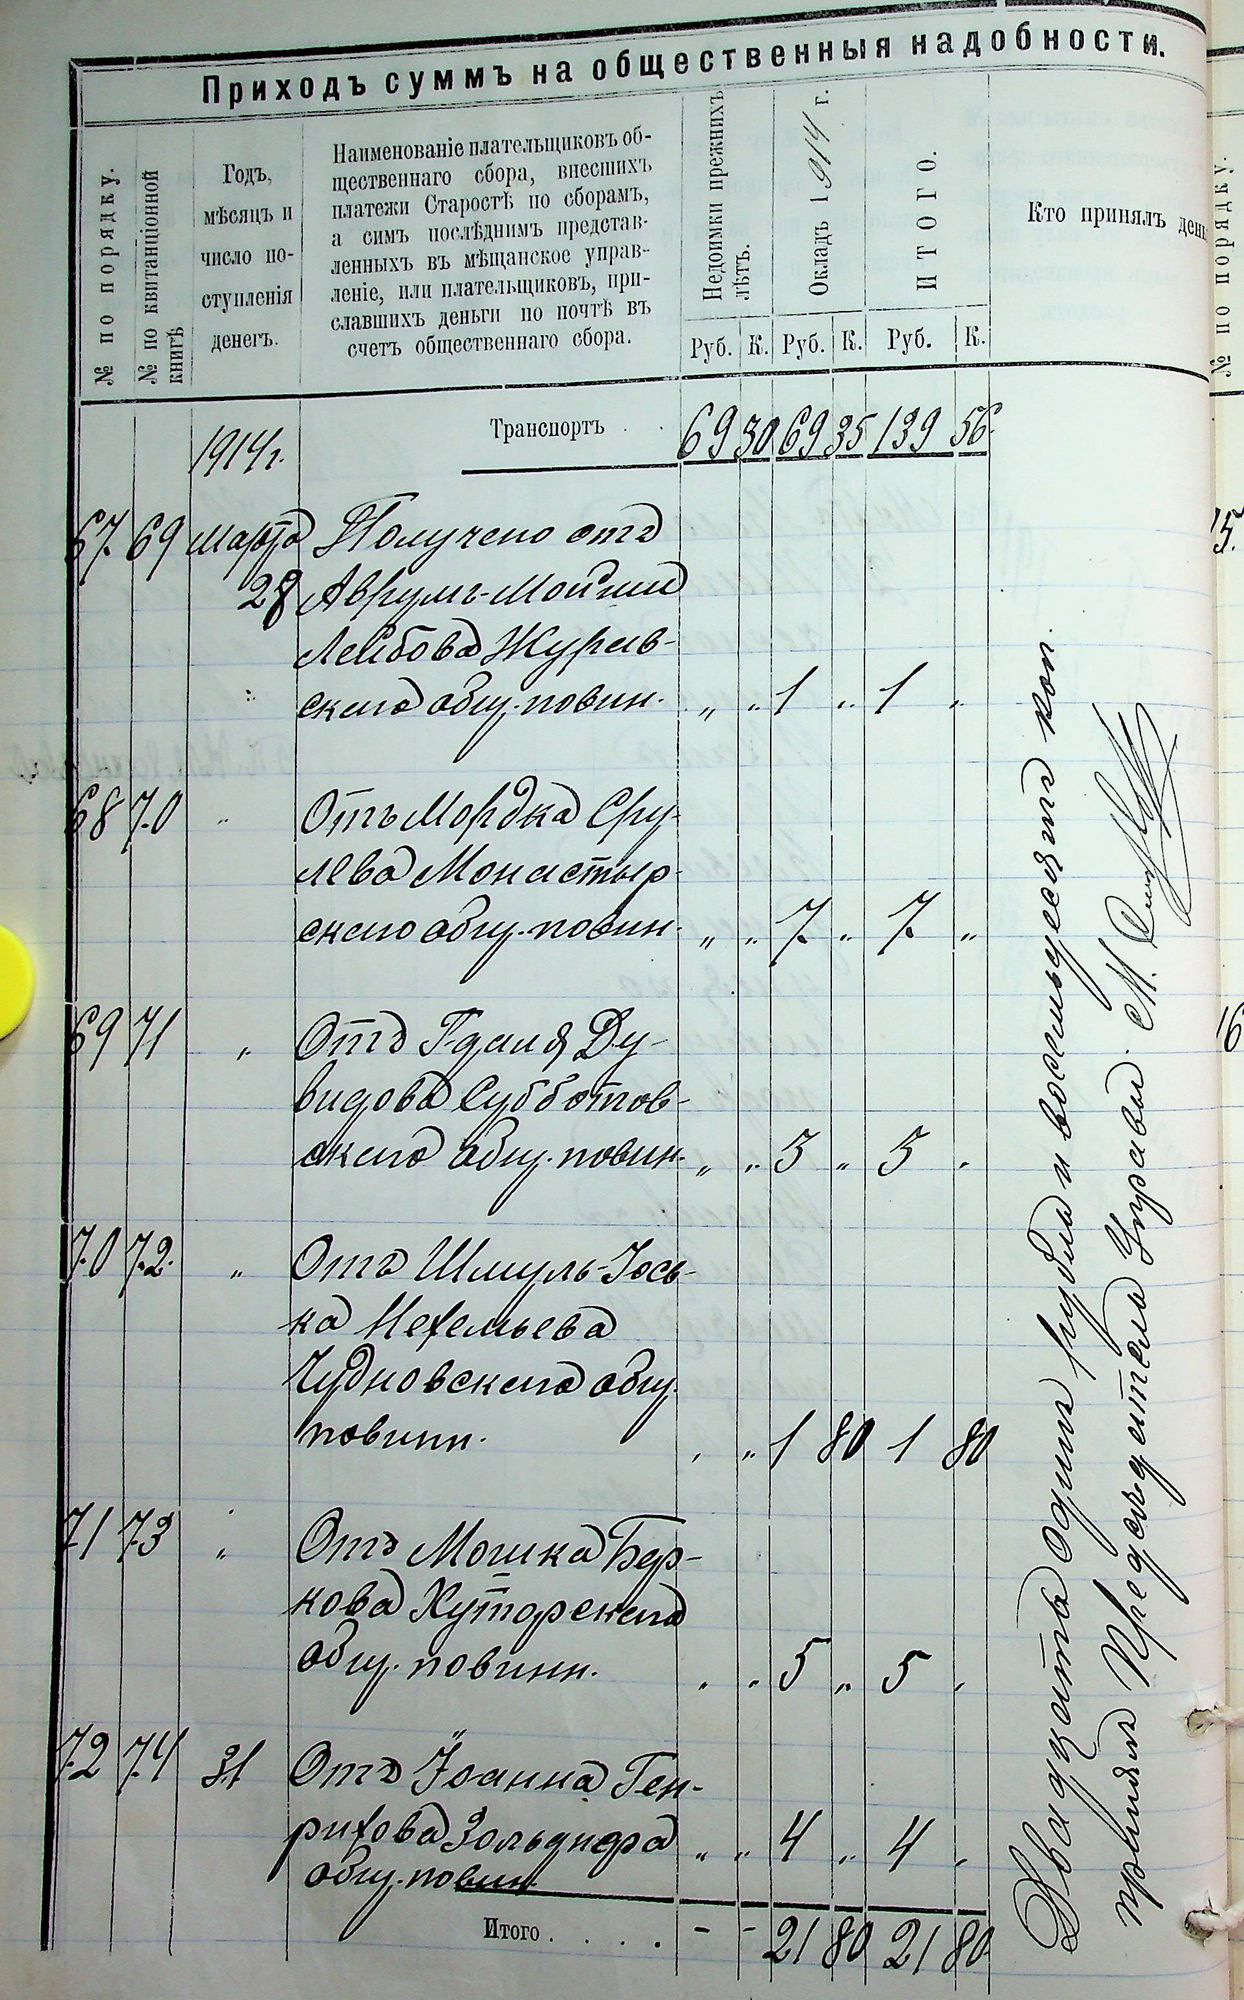 Приходъ суммъ на общественныя надобности.
№ по порядку.
№ по квитанціонной
книгѣ
Годъ,
мѣсяцъ и
число по-
ступленія
денегъ.
Наименованіе плательщиковъ об-
щественнаго сбора, внесшихъ
платежи Старостѣ по сборамъ,
а симъ послѣднимъ представ-
ленныхъ въ мѣщанское управ-
леніе, или плательщиковъ, при-
славшихъ деньги по почтѣ въ
счетъ общественнаго сбора.
Недоимки прежнихъ
лѣтъ.
Окладъ 1914 г.
ИТОГО.
Кто принялъ день
Руб. К. Руб. К. Руб. К.
Транспортъ . . 69 30 69 35 139 56.
1914г.
67. 69 Марта Получено отъ
28 Аврумъ-Мойши
Лейбова Журав-
скаго общ. повин. „ „ 1 „ 1 „
68 70 „ Отъ Мордка Сру-
лева Монастыр-
скаго общ. повин. „ „ 7 „ 7 „
69 71 „ Отъ Гдаля Ду-
видова Субботов-
скаго общ. повин. „ „ 3 „ 3 „
70 72. „ Отъ Шмуль-Іось-
ка Нехемьева
Чудновскаго общ.
повинн. „ „ 1 80 1 80
71 73 „ Отъ Мошка Бер-
кова Хуторскаго
общ. повинн. „ „ 5 „ 5 „
72 74 31 Отъ Іоанна Ген-
рихова
общ. повин. „ „ 4 „ 4 „
Итого . . . . - - 21 80 21 80
Двадцать одинъ рубль и восемьдесятъ коп.
принялъ Предсѣдатель Управы М.
№ по порядку.
75.
76